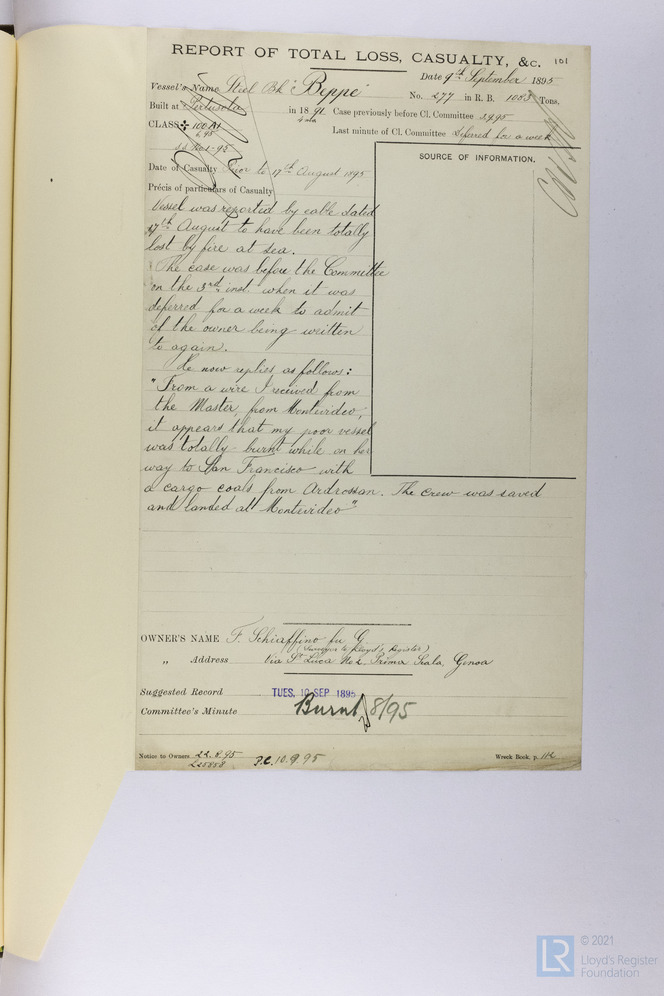 REPORT OF TOTAL LOSS, CASUALTY, &c. 161
Date 9th September 1895
Vessel's Name Steel Bk "Beppe"
No. 277 in R. B. 1005 Tons.
Built at Pertusola in 1891 Case previously before Cl. Committee 3.9.95
4 mo
CLASS ✠ 100A1 Last minute of Cl. Committee Deferred for a week
1-95
SOURCE OF INFORMATION.
Date of Casualty Prior to 17th August 1895
Précis of particulars of Casualty
Vessel was reported by cable dated
17th August to have been totally
lost by fire at sea.
The case was before the Committee
on the 3rd inst. when it was
deferred for a week to admit
of the owner being written
to again.
He now replies as follows:
"From a wire I received from
the Master, from Montevideo,
it appears that my poor vessel
was totally burnt while on her
way to San Francisco with
a cargo coals from Ardrossan. The crew was saved
and landed at Montevideo"
OWNER'S NAME F. Schiaffino fu G.
(Surveyor to Lloyd's Register)
" Address Via St Luca No 2, Prima Scala, Genoa
Suggested Record TUES. 10 SEP 1895
Committee's Minute Burnt 8/95
Notice to Owners 22.8.95 P.C. 10.9.95 Wreck Book, p. 112
© 2021
Lloyd's Register
Foundation
LR